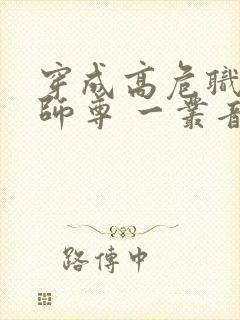 穿成高危職
師尊 一叢音
路傳中